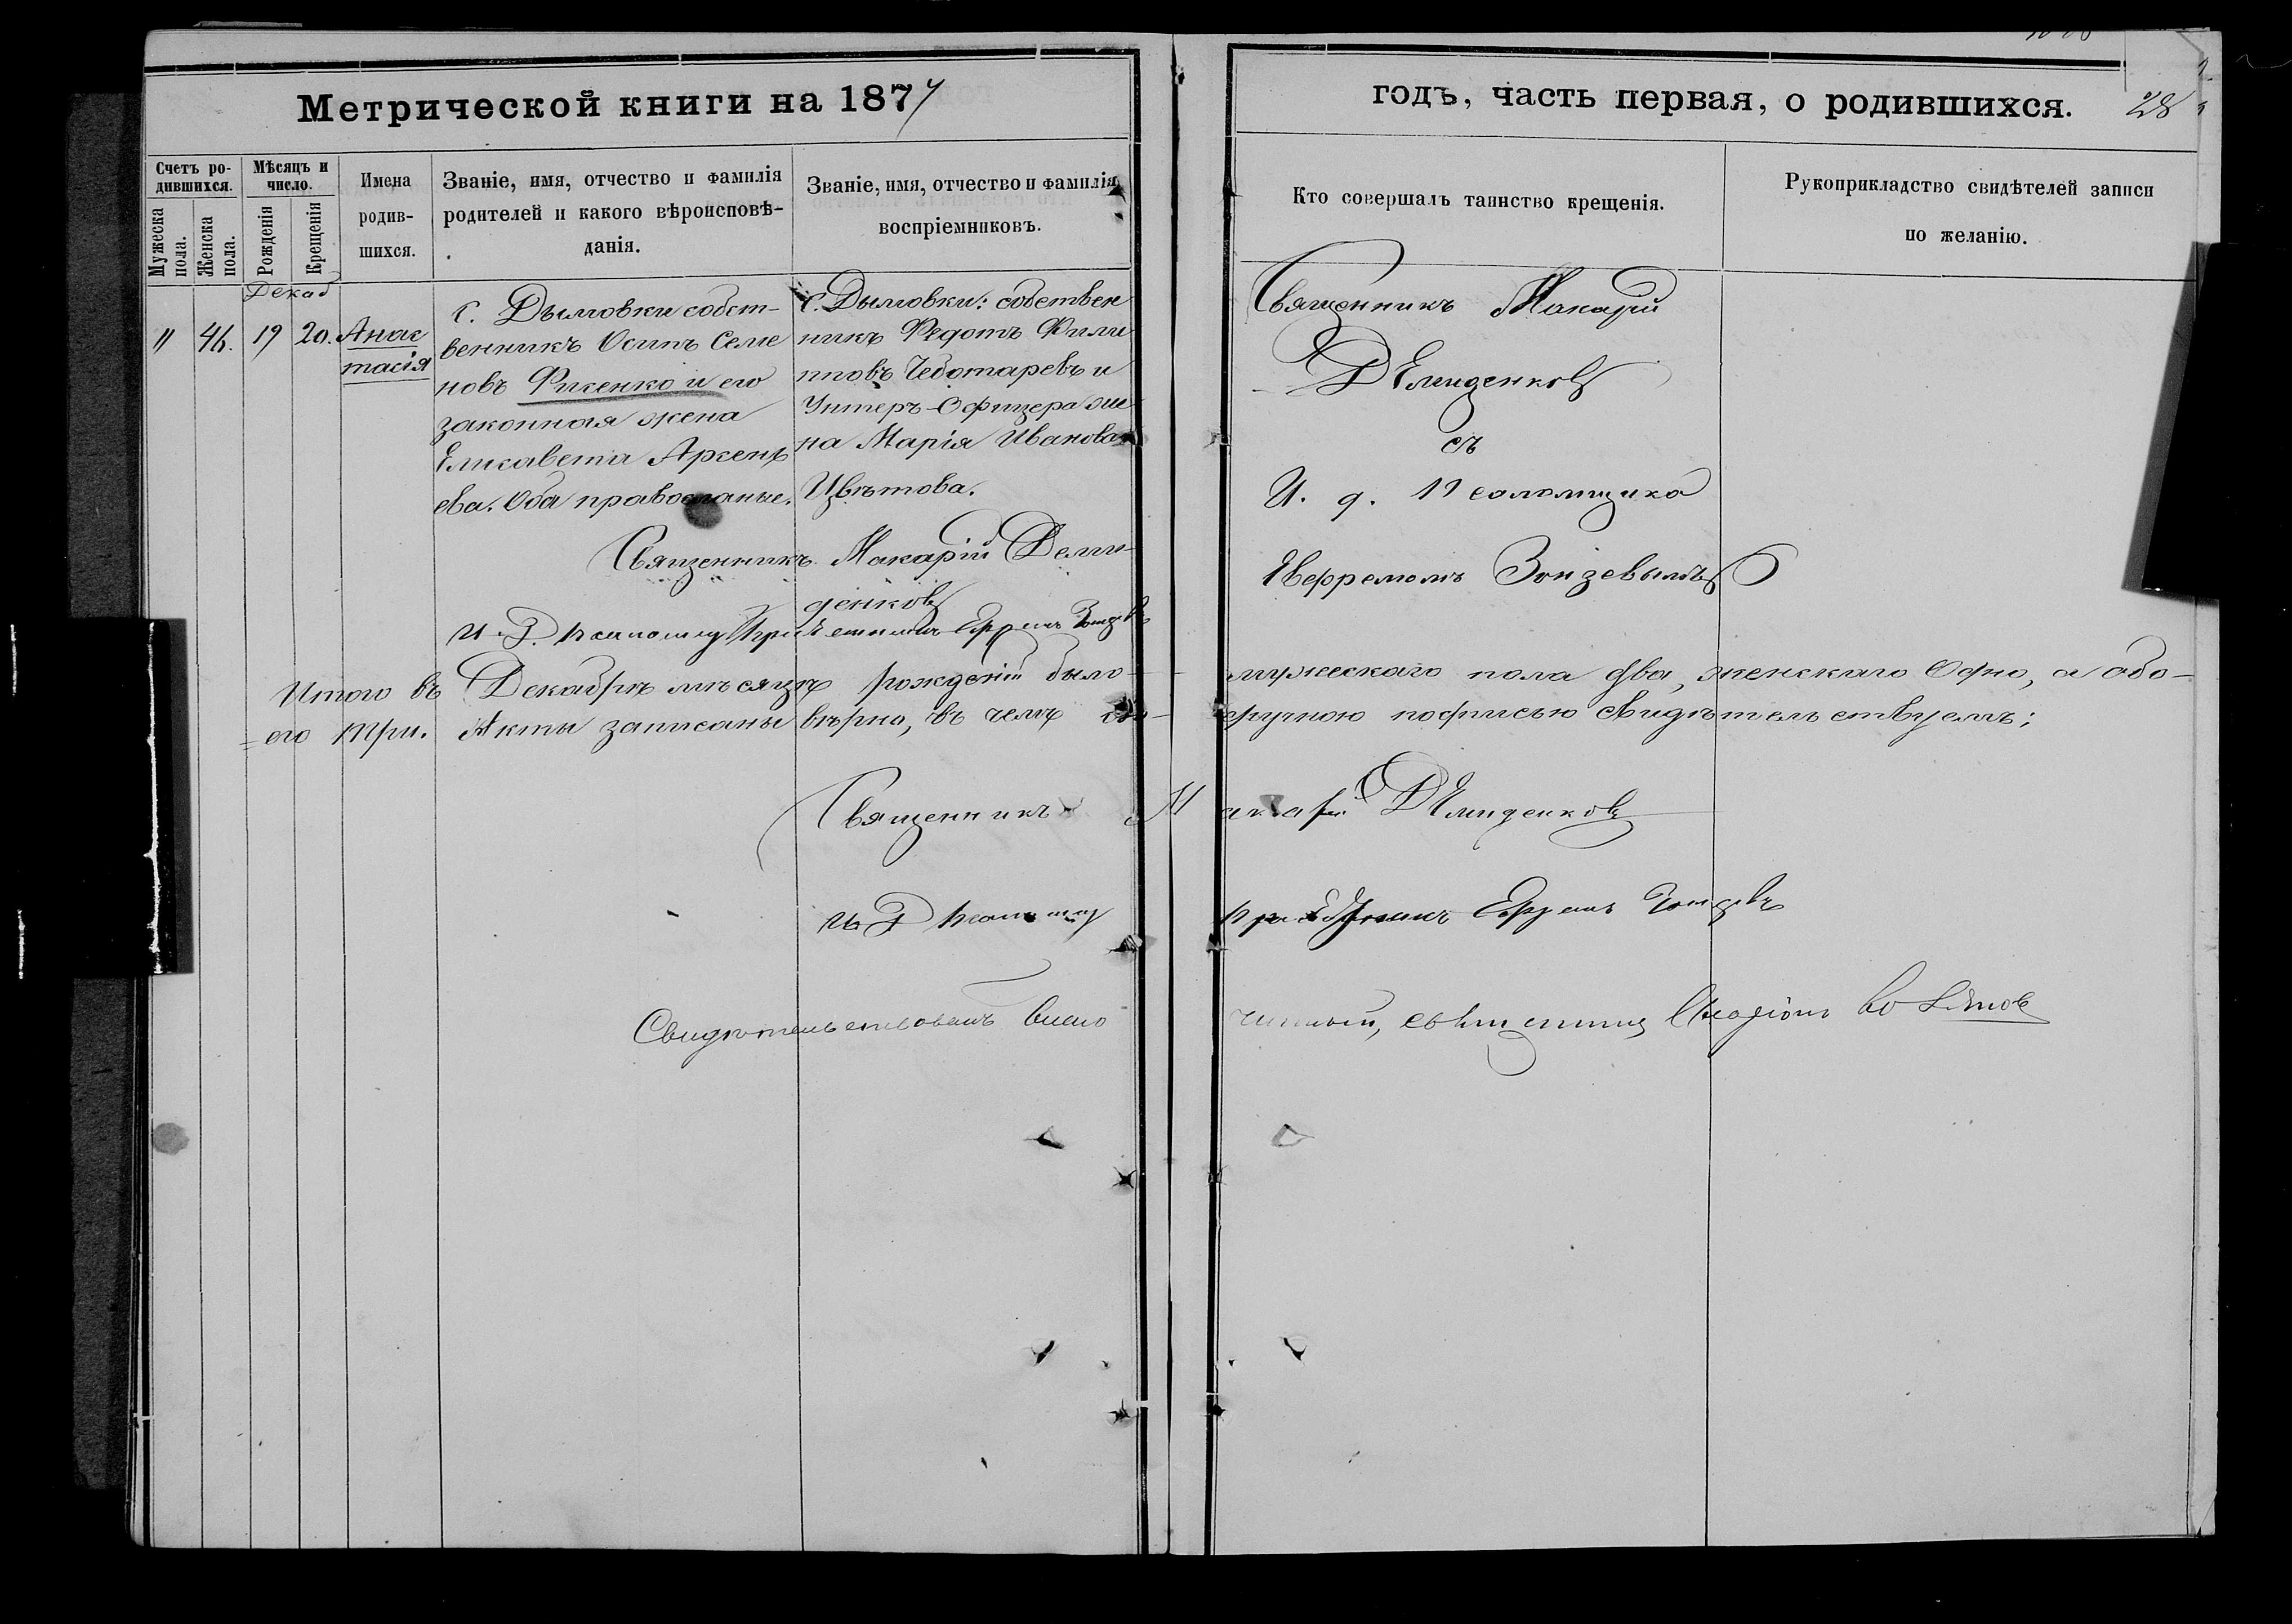 Метрической книги на 1877
годъ, часть первая, о родившихся.
28
Счетъ ро-
дившихся.
Мужеска
пола.
Женска
пола.
Мѣсяцъ и
число.
Рожденія
Крещенія
Имена
родив-
шихся.
Званіе, имя, отчество и фамилія
родителей и какого вѣроисповѣ-
данія.
Званіе, имя, отчество и фамилія
воспріемниковъ.
Кто совершалъ таинство крещенія.
Рукоприкладство свидѣтелей записи
по желанію.
Декаб
" 46. 19 20.
Анас
тасія
с. Дымовки собст-
венникъ Осипъ Семе
новъ Фисенко и его
законная жена
Елисавета Арсень
ева. Оба православные.
с. Дымовки: собствен
никъ Федотъ Фили
пповъ Чеботаревъ и
Унтеръ-Офицера же
на Марія Иванова
Цвѣтова.
Священникъ Макарій
Демиденковъ
съ
И. д. Псаломщика
Евфремомъ
Священникъ Макарій Деми-
денковъ
И. Д.
Итого въ Декабрѣ мѣсяцѣ рожденій было мужескаго пола два, женскаго одно, а обо-
его три. Акты записаны вѣрно, въ чемъ собственно-
ручною подписью свидѣтельствуемъ;
Священникъ Макарій Демиденковъ
И. Д.
Свидѣтельствовалъ благочинный, священникъ